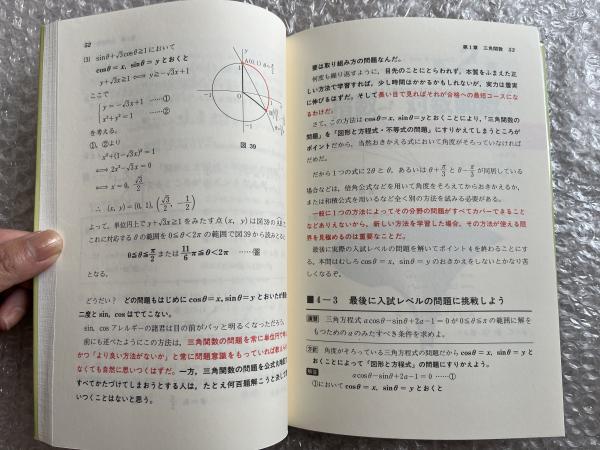 52
(3) sinθ+√3cosθ≧1において
cosθ=x, sinθ=yとおくと
y+√3x≧1 ⟺ y≧−√3x+1
ここで
y=−√3x+1 ……①
x²+y²=1 ……②
を考える。
①, ②より
x²+(1−√3x)²=1
⟺ 2x²−√3x=0
⟺ x=0, √3/2
∴ (x, y)=(0, 1), (√3/2, −1/2)
y
A(0, 1)
1
−1
O
1
x
−1
図 39
よって, 単位円上でy+√3x≧1をみたす点(x, y)は図39の
これに対応するθの範囲を0≦θ<2πの範囲で図39から読みとると
0≦θ≦π/2 または 11/6π≦θ<2π ……答
となる。
どうだい? どの問題もはじめにcosθ=x, sinθ=yとおいたが
二度とsin, cosはでてこない。
sin, cosアレルギーの諸君は目の前がパッと明るくなっただろう。
前にも述べたようにこの方法は, 三角関数の問題を常に単位円で
かつ「より良い方法がないか」と常に問題意識をもっていれば
なくても自然に思いつくはずだ。一方, 三角関数の問題を公式
すべてかたづけてしまおうとする人は, たとえ何百題解こうと
いつくことはないと思う。
第1章 三角関数 53
要は取り組み方の問題なんだ。
何度も繰り返すように, 目先のことにとらわれず, 本質をふまえた正
しい方法で学習すれば, 少し時間はかかるかもしれないが, 実力は着実
に伸びるはずだ。そして長い目で見ればそれが合格への最短コースにな
るわけだ。
さて, この方法はcosθ=x, sinθ=yとおくことにより,「三角関数の
問題」を「図形と方程式・不等式の問題」にすりかえてしまうところが
ポイントだから, 当然おきかえる式において角度がそろっていなければ
だめだ。
だから1つの式に2θとθ, あるいはθ+π/3とθ−π/3が同居している
場合などは, 倍角公式などを用いて角度をそろえてからおきかえるか,
または和積公式を用いるなど全く別の方法を試みる必要がある。
一般に1つの方法によってその分野の問題がすべてカバーできること
などありえないから, 新しい方法を学習した場合, その方法が使える限
界を見極めるのは重要なことだ。
最後に実際の入試レベルの問題を解いてポイント4を終わることにす
る。本問はむしろcosθ=x, sinθ=yのおきかえをしないとかなり苦
しくなるぞ。
■4−3 最後に入試レベルの問題に挑戦しよう
演習 三角方程式 acosθ−sinθ+2a−1=0が0≦θ≦πの範囲に解を
もつためのaのみたすべき条件を求めよ。
方針 角度がそろっている三角方程式の問題だからcosθ=x, sinθ=yと
おくことによって「図形と方程式」の問題にすりかえよう。
解答 acosθ−sinθ+2a−1=0 ……①
①においてcosθ=x, sinθ=yとおくと